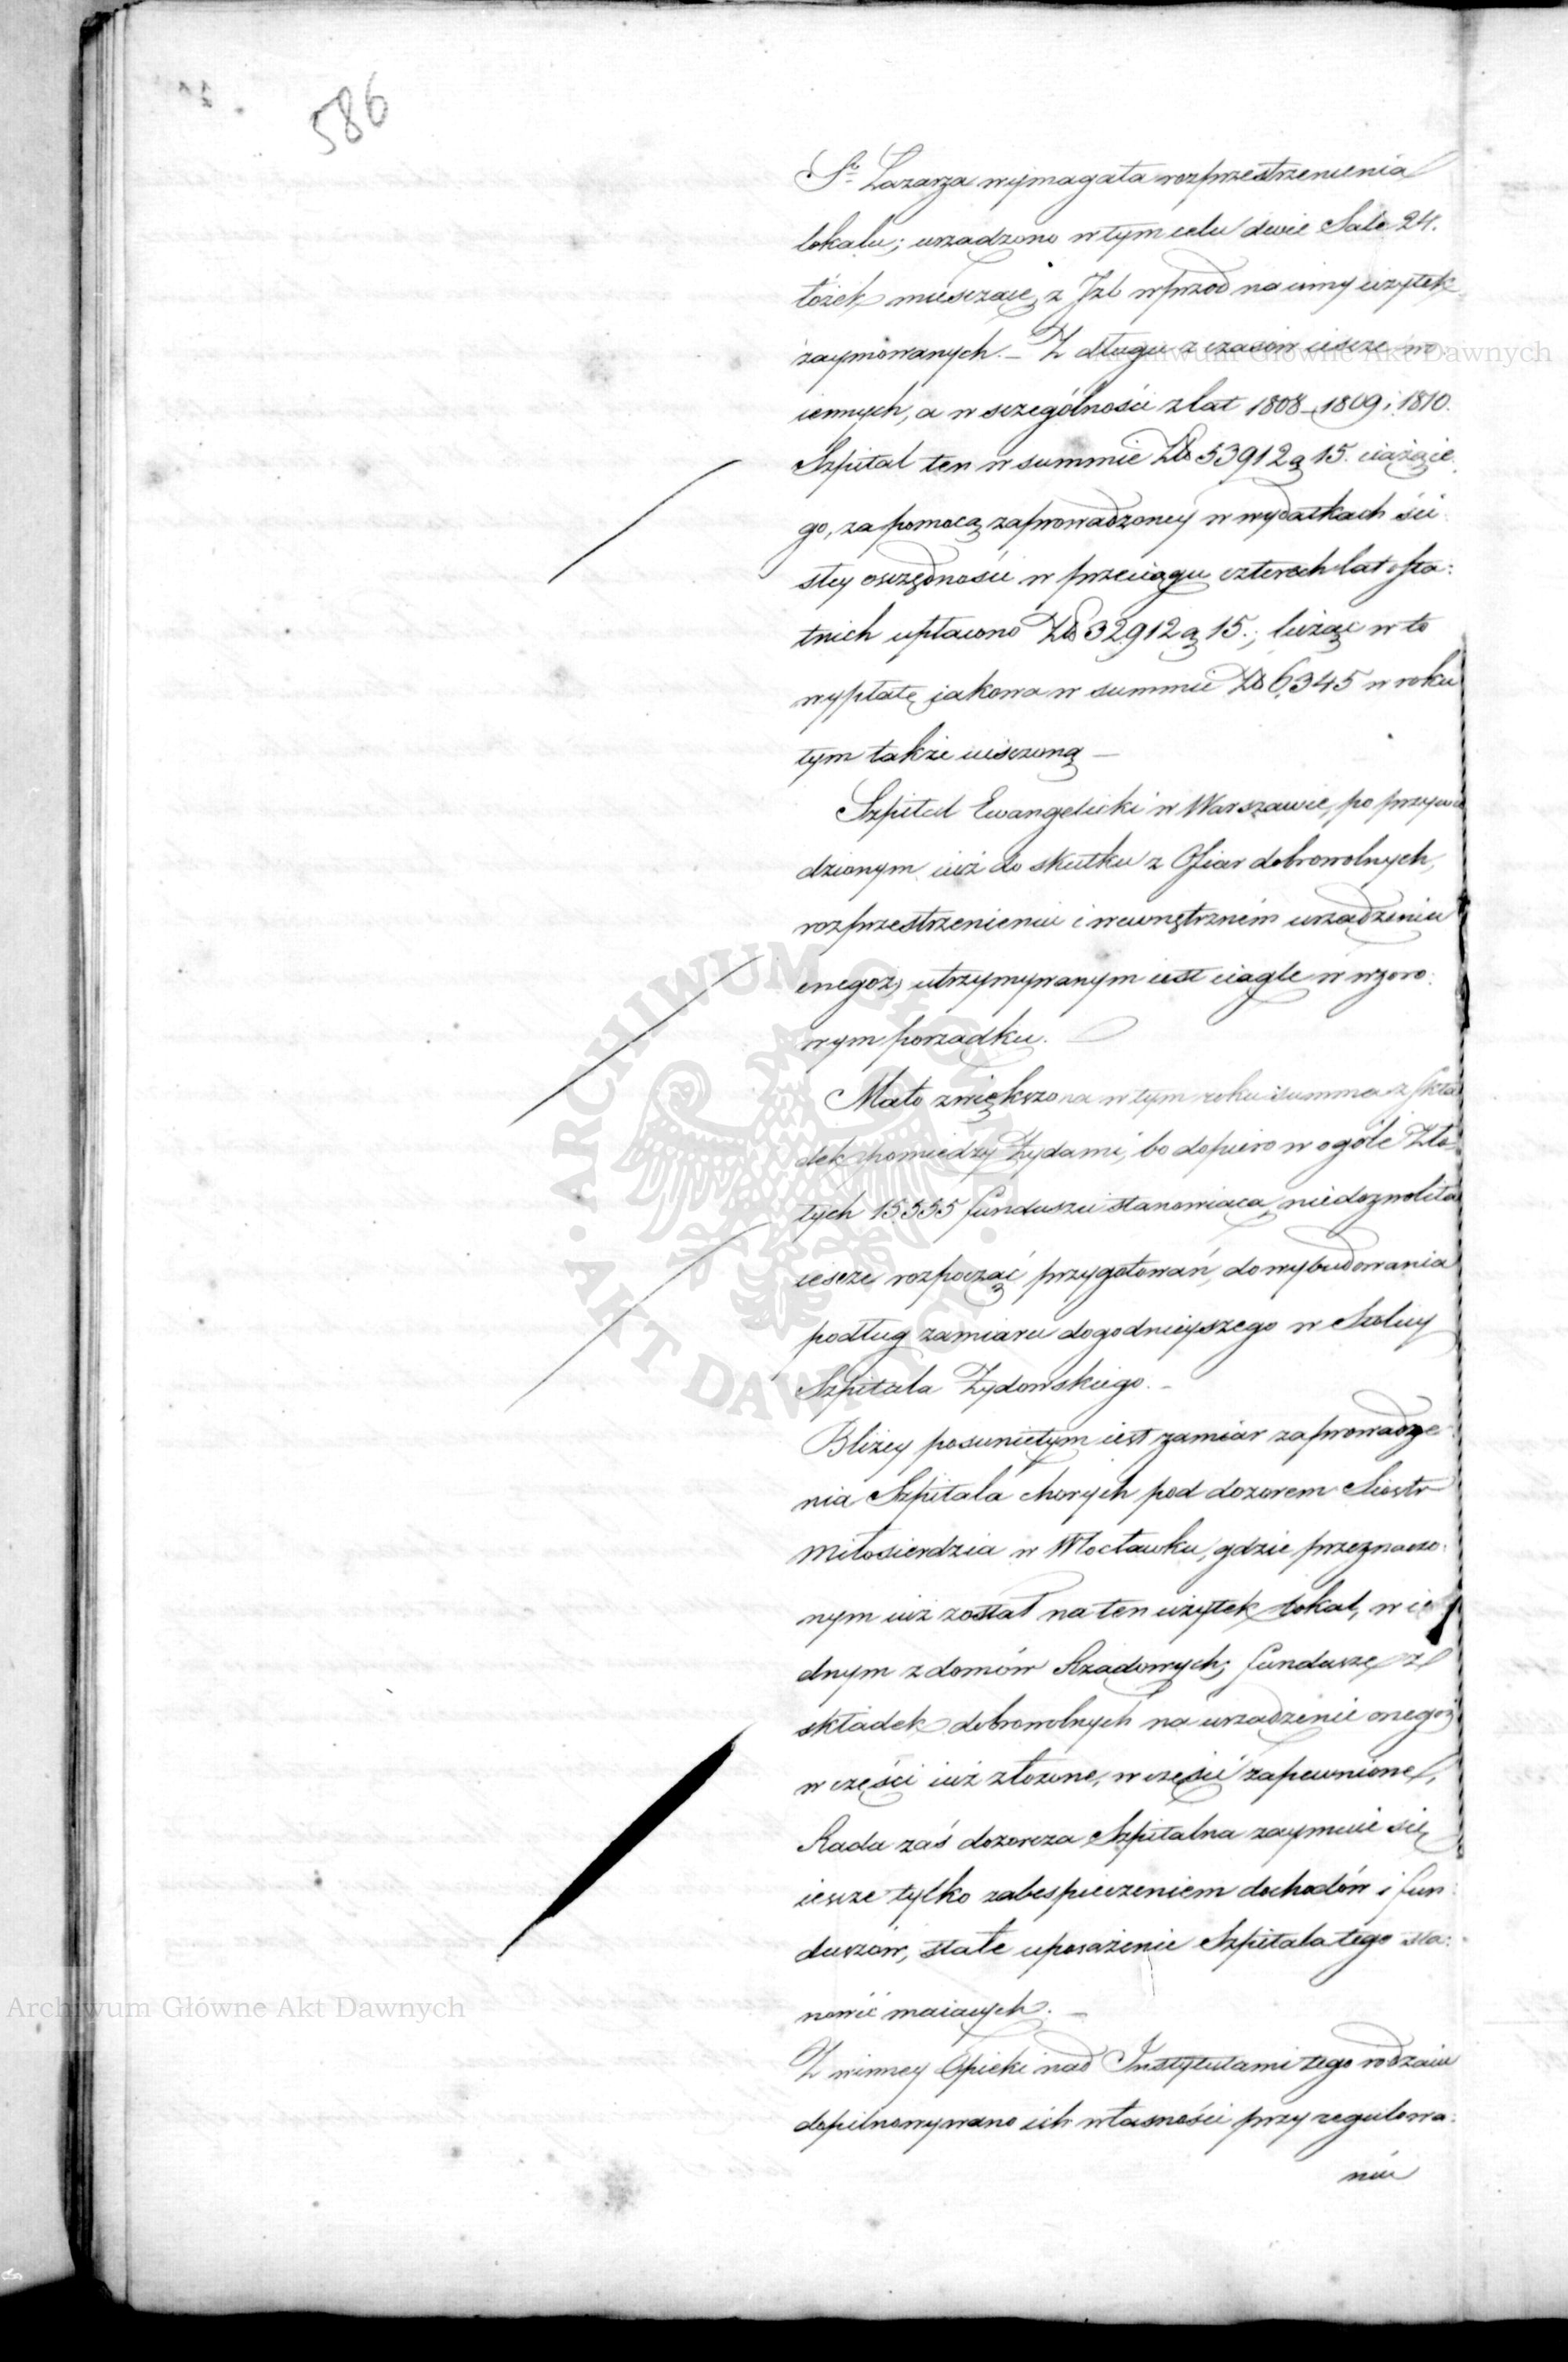 586
St. Łazarza wymagała rozprzestrzenienia
lokalu; urządzono w tym celu dwie Sale 24.
łóżek mieszczące, z Jzb wprzod na inny użytek
zaymowanych. – Z długu z czasów ieszcze wo-
iennych, a w szczególności z lat 1808–1809 i 1810.
Szpital ten w summie Zło 53912 g 15. ciążące
go, za pomocą zaprowadzoney w wydatkach ści:
słey oszczędności w przeciągu czterech lat osta:
tnich upłacono Zło 32912 g 15.; licząc w to
wypłatę jakowa w summie Zło 6,345 w roku
tym także uiszczoną –
Szpital Ewangelicki w Warszawie, po przywie
dzionym iuż do skutku z Ofiar dobrowolnych,
rozprzestrzenieniu i wewnętrzném urządzeniu
onegoż, utrzymywanym iest ciągle w wzoro:
wym porządku.
Mało zwiększona w tym roku summa z skła
dek pomiędzy Żydami, bo dopiero w ogóle Zło
tych 15555 funduszu stanowiąca, niedozwoliła
ieszcze rozpocząć przygotowań, do wybudowania
podług zamiaru dogodnieyszego w Stolicy
Szpitala Żydowskiego. –
Bliżey posuniętym iest zamiar zaprowadze
nia Szpitala chorych pod dozorem Siostr
Miłosierdzia w Włocławku, gdzie przeznaczo:
nym iuż został na ten użytek lokal, w ie
dnym z domów Rządowych; fundusze z
składek dobrowolnych na urządzenie onegoż
w części iuż złożone, w części zapewnione,
Rada zaś dozorcza Szpitalna zaymuie się
ieszcze tylko zabespieczeniem dochodów i fun:
duszów, stałe uposażenie Szpitala tego sta:
nowić maiących. –
Z winney Opieki nad Instytutami tego rodzaiu
dopilnowywano ich własności przy regulowa:
niu
Archiwum Główne Akt Dawnych
Archiwum Główne Akt Dawnych
ARCHIWUM GŁÓWNE AKT DAWNYCH